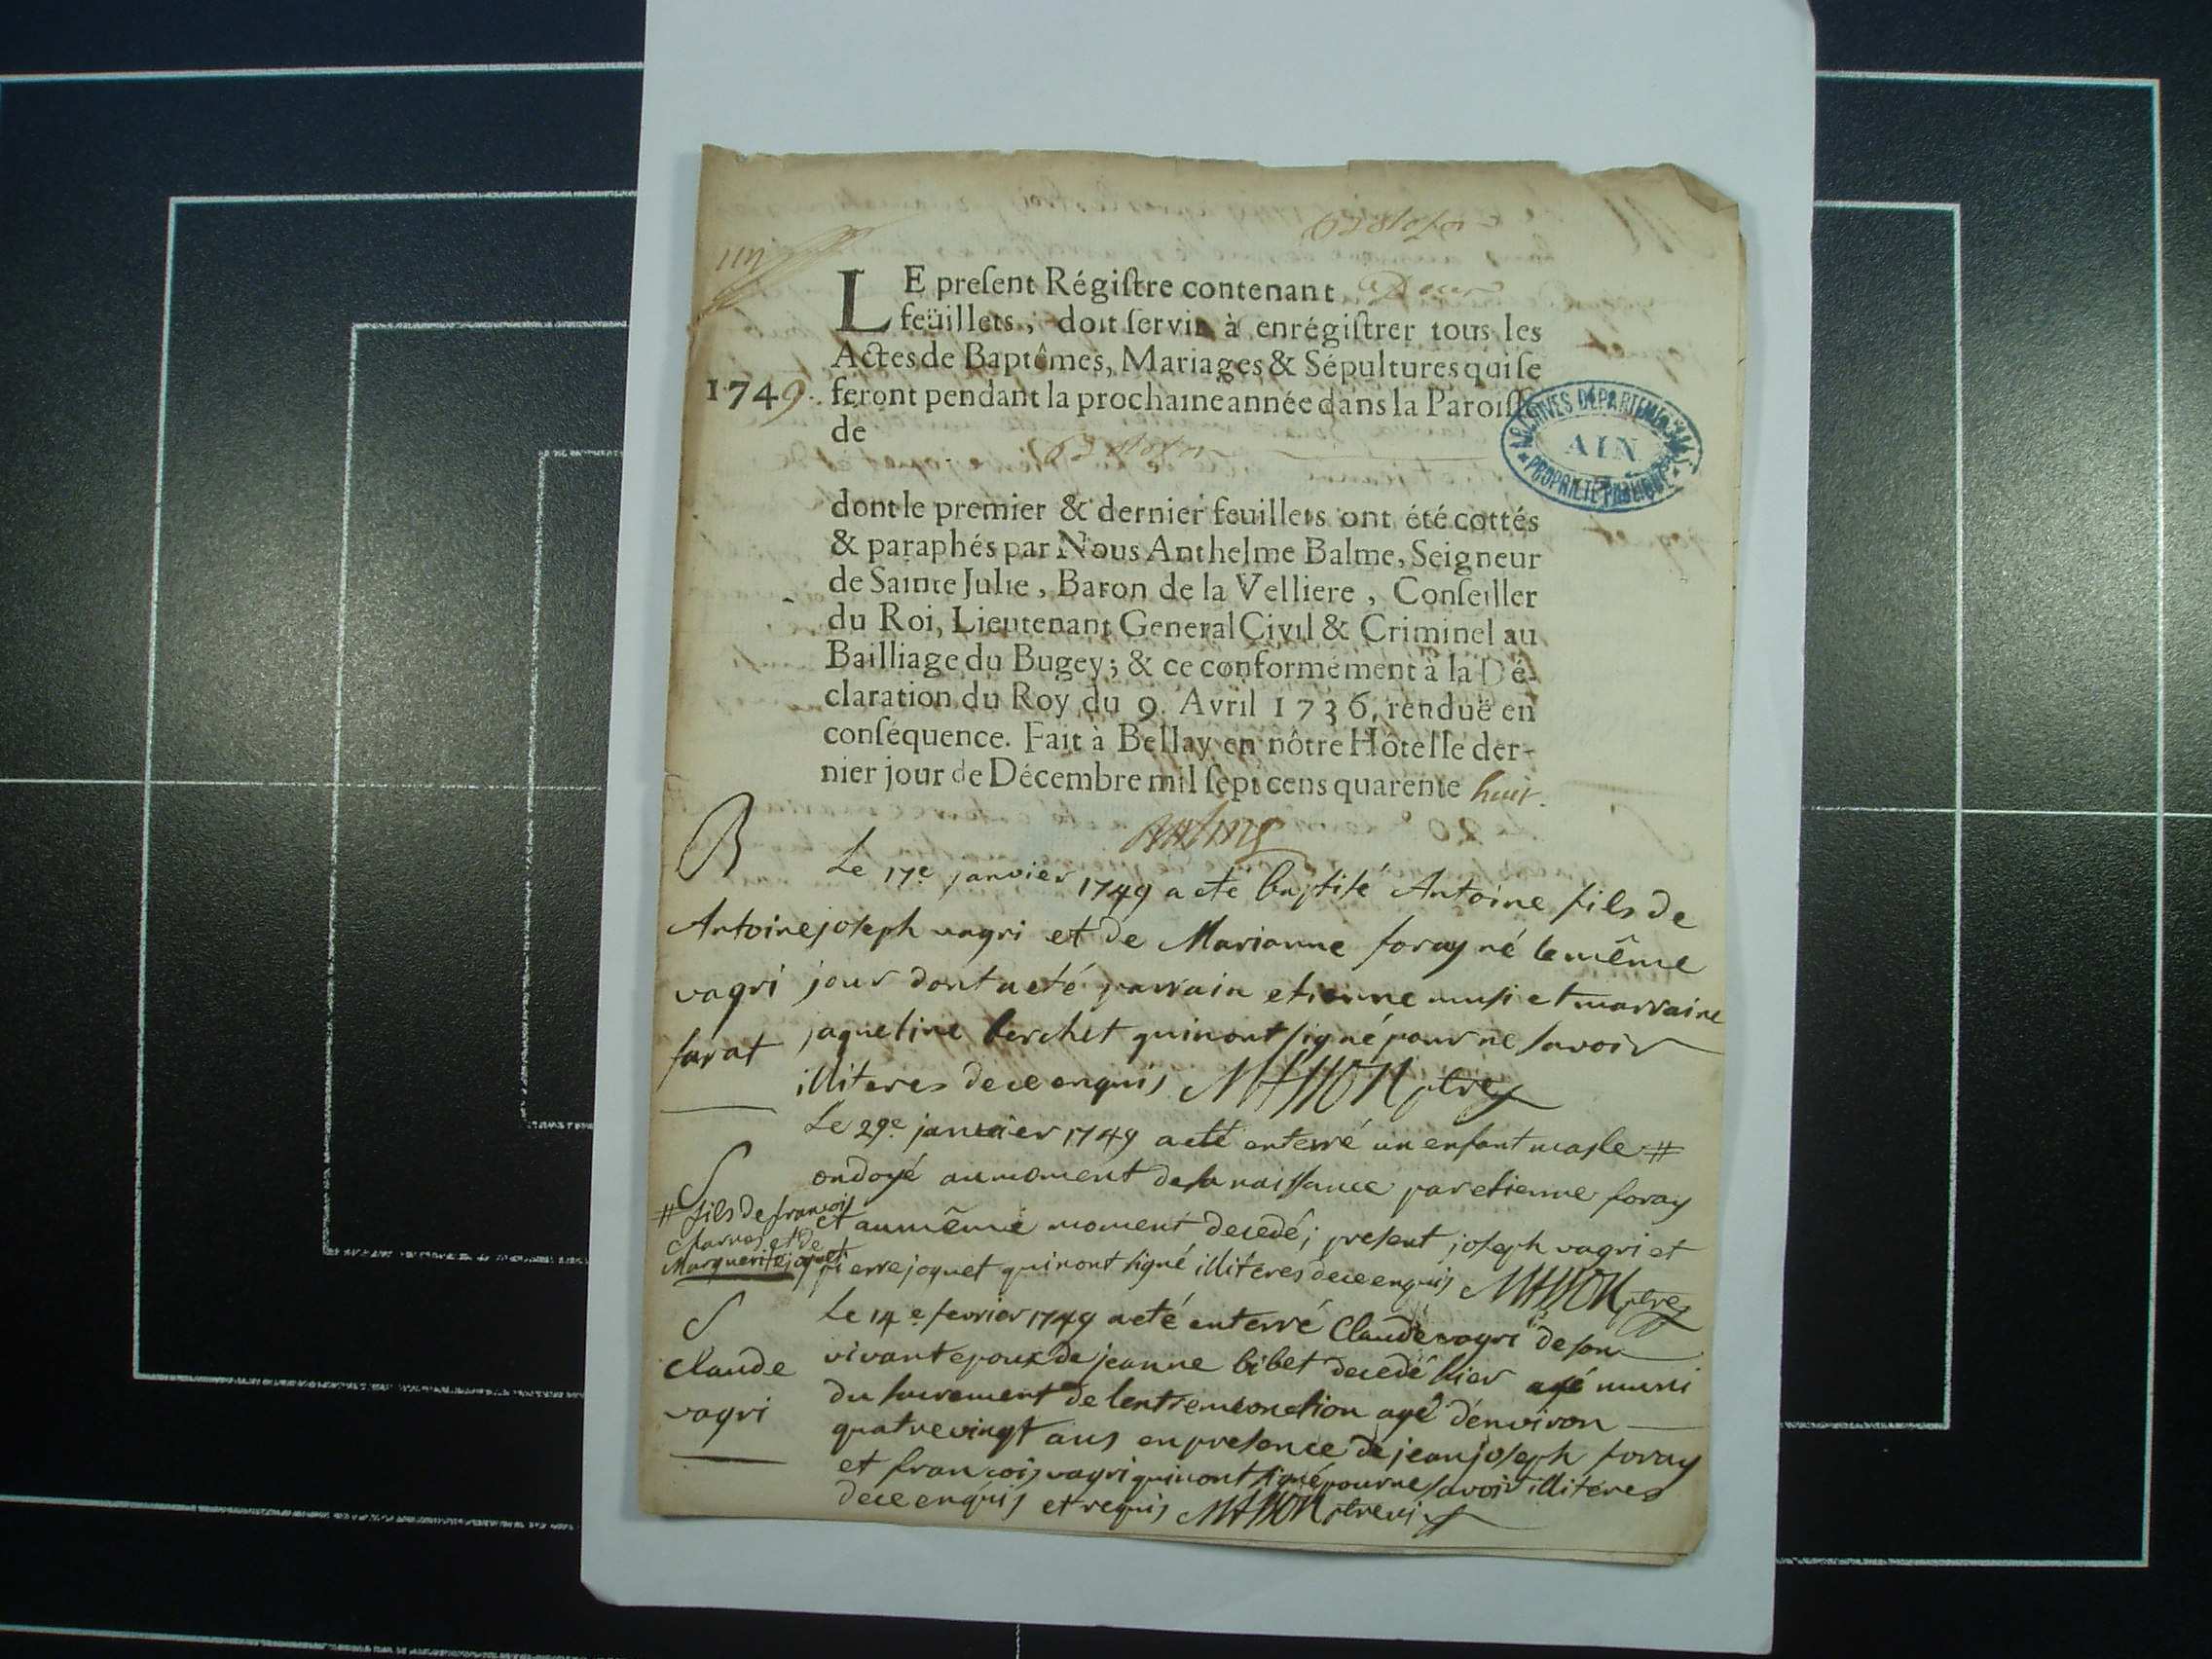 LE preſent Régiſtre contenant
feüillets, doit ſervir à enrégiſtrer tous les
Actes de Baptêmes, Mariages & Sépultures qui ſe
1749. feront pendant la prochaine année dans la Paroiſſe
de
ARCHIVES DÉPARTEMENTALES
AIN
PROPRIÉTÉ PUBLIQUE
dont le premier & dernier feuillets ont été cottés
& paraphés par Nous Anthelme Balme, Seigneur
de Sainte Julie, Baron de la Velliere, Conſeiller
du Roi, Lieutenant General Civil & Criminel au
Bailliage du Bugey; & ce conformément à la Dé-
claration du Roy du 9. Avril 1736, renduë en
conſéquence. Fait à Bellay en nôtre Hôtel le der-
nier jour de Décembre mil ſept cens quarente huit.
B
Le 17e janvier 1749 a eté baptisé Antoine fils de
Antoine joseph vagri et de Marianne foray né le même
vagri jour dont a eté parrain etienne musi et marraine
jaqueline berchet qui nont signé pour ne savoir
illiteres de ce enquis MASSON ptre
Le 29e janvier 1749 a eté enterré un enfant masle #
S ondoyé au moment de sa naissance par etienne foray
# fils de françois
et de
Marguerite joquet
et au même moment decedé; present joseph vagri et
pierre joquet qui nont signé illiteres de ce enquis MASSON ptre
S Le 14e fevrier 1749 a eté enterré Claude vagri de son
Claude vivant epoux de jeanne bibet decedé hier muni
vagri du sacrement de lentremeonction agé denviron
quatre vingt ans en presence de jean joseph foray
et françois vagri qui nont signé pour ne savoir illiteres
de ce enquis et requis MASSON